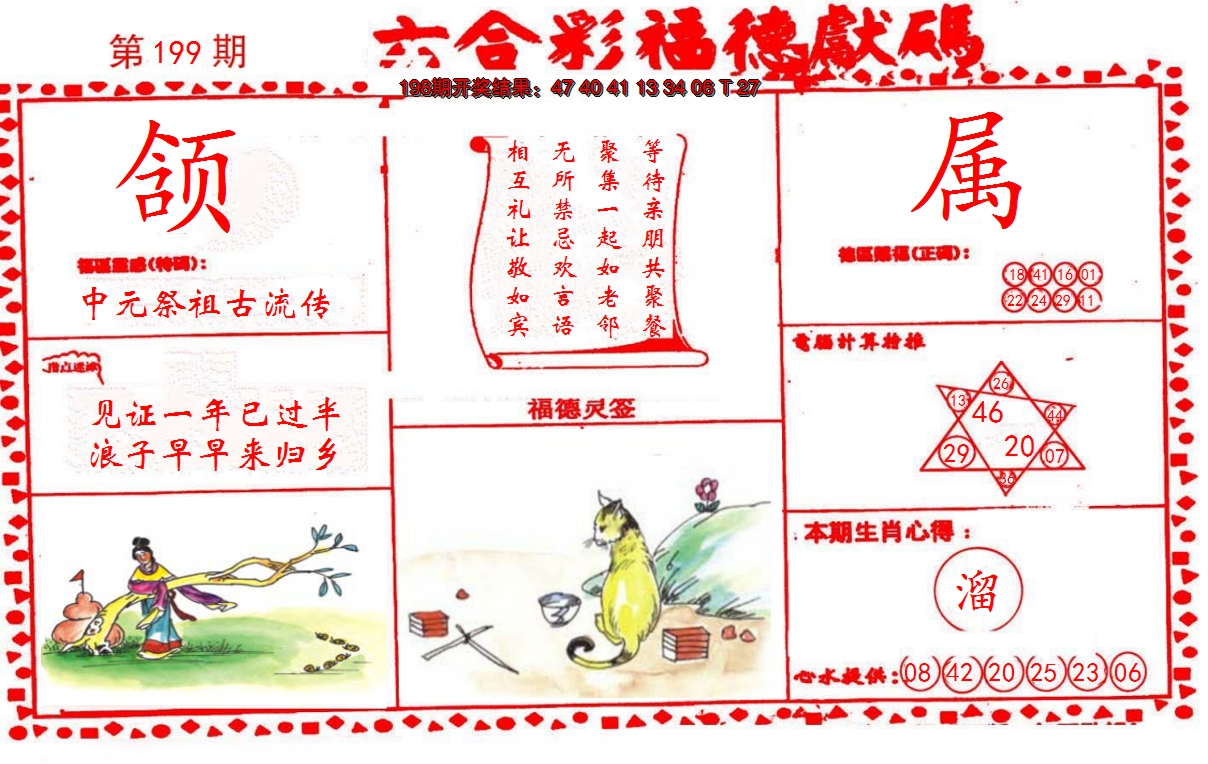 六合彩福德獻碼
第199期
198期开奖结果：47 40 41 13 34 06 T 27
颔
福區靈感(特碼)：
中元祭祖古流传
指点迷津
见证一年已过半
浪子早早来归乡
等待亲朋共聚餐
聚集一起如老邻
无所禁忌欢言语
相互礼让敬如宾
福德灵签
属
德區賜福(正碼)：
18 41 16 01
22 24 29 11
電腦計算推
26
13 46 44
29 20 07
36
本期生肖心得：
溜
心水提供：08 42 20 25 23 06